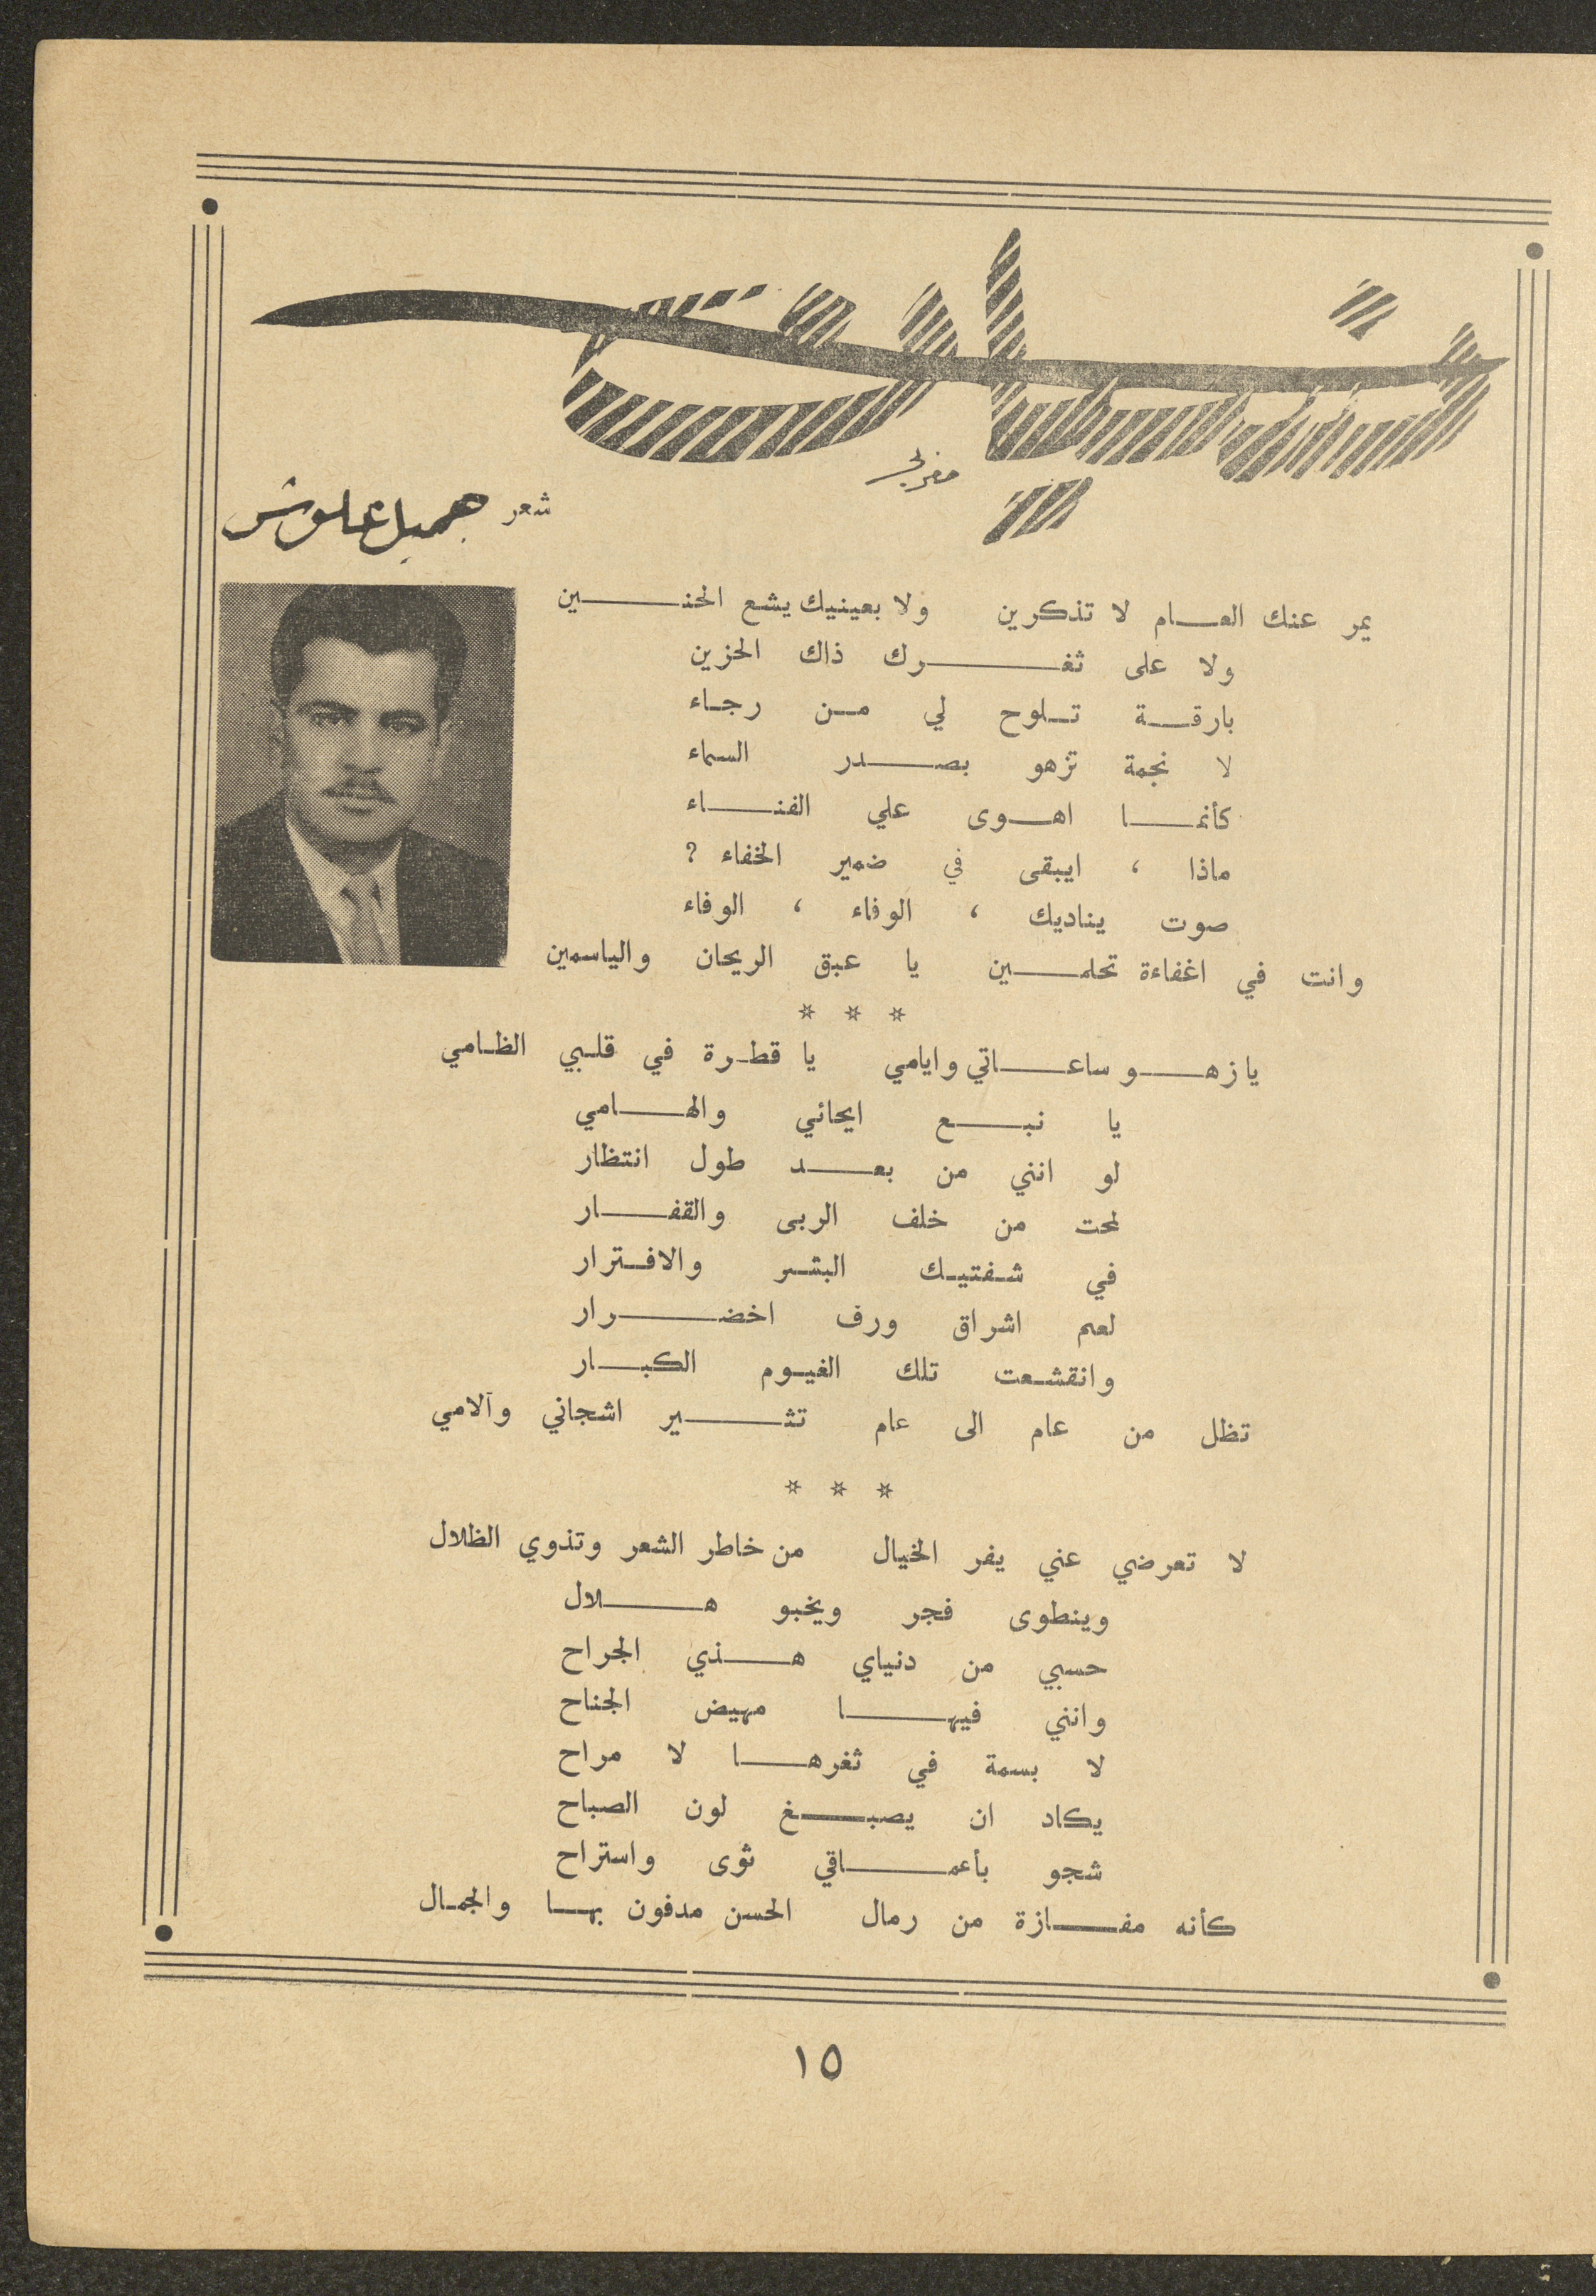 شعر جميل علوش
يمر عنك العـــام لا تذكرين ولا بعينيك يشع الحنـــين
ولا على ثغـــرك ذاك الحزين
بارقــة تــلوح لي مــن رجــاء
لا نجمة تزهو بصـــدر السماء
كأنمـــا اهــوى علي الفنـــاء
ماذا ، ايبقى في ضمير الخفاء ?
صوت يناديك ، الوفاء ، الوفاء
وانت في اغفاءة تحلمـــين يا عبق الريحان والياسمين
* * *
يا زهـــو ساعـــاتي وايامي يا قطـرة في قلـبي الظـامي
يا نبـــع ايحائي والهـــامي
لو انني من بعـــد طول انتظار
لمحت من خلف الربى والقفـــار
في شـفتيـك البشـر والافـترار
لعم اشراق ورف اخضـــرار
وانقشـعت تلك الغيـوم الكبـــار
تظل من عام الى عام تثـــير اشجاني وآلامي
* * *
لا تعرضي عني يفر الخيال من خاطر الشعر وتذوي الظلال
وينطوى فجر ويخبو هـــلال
حسبي من دنياي هـــذي الجراح
وانني فيهـــا مهيض الجناح
لا بسمة في ثغرهـــا لا مراح
يكاد ان يصبـــغ لون الصباح
شجو بأعمـــاقي ثوى واستراح
كأنه مفـــازة من رمال الحسن مدفون بهــا والجمـال
١٥